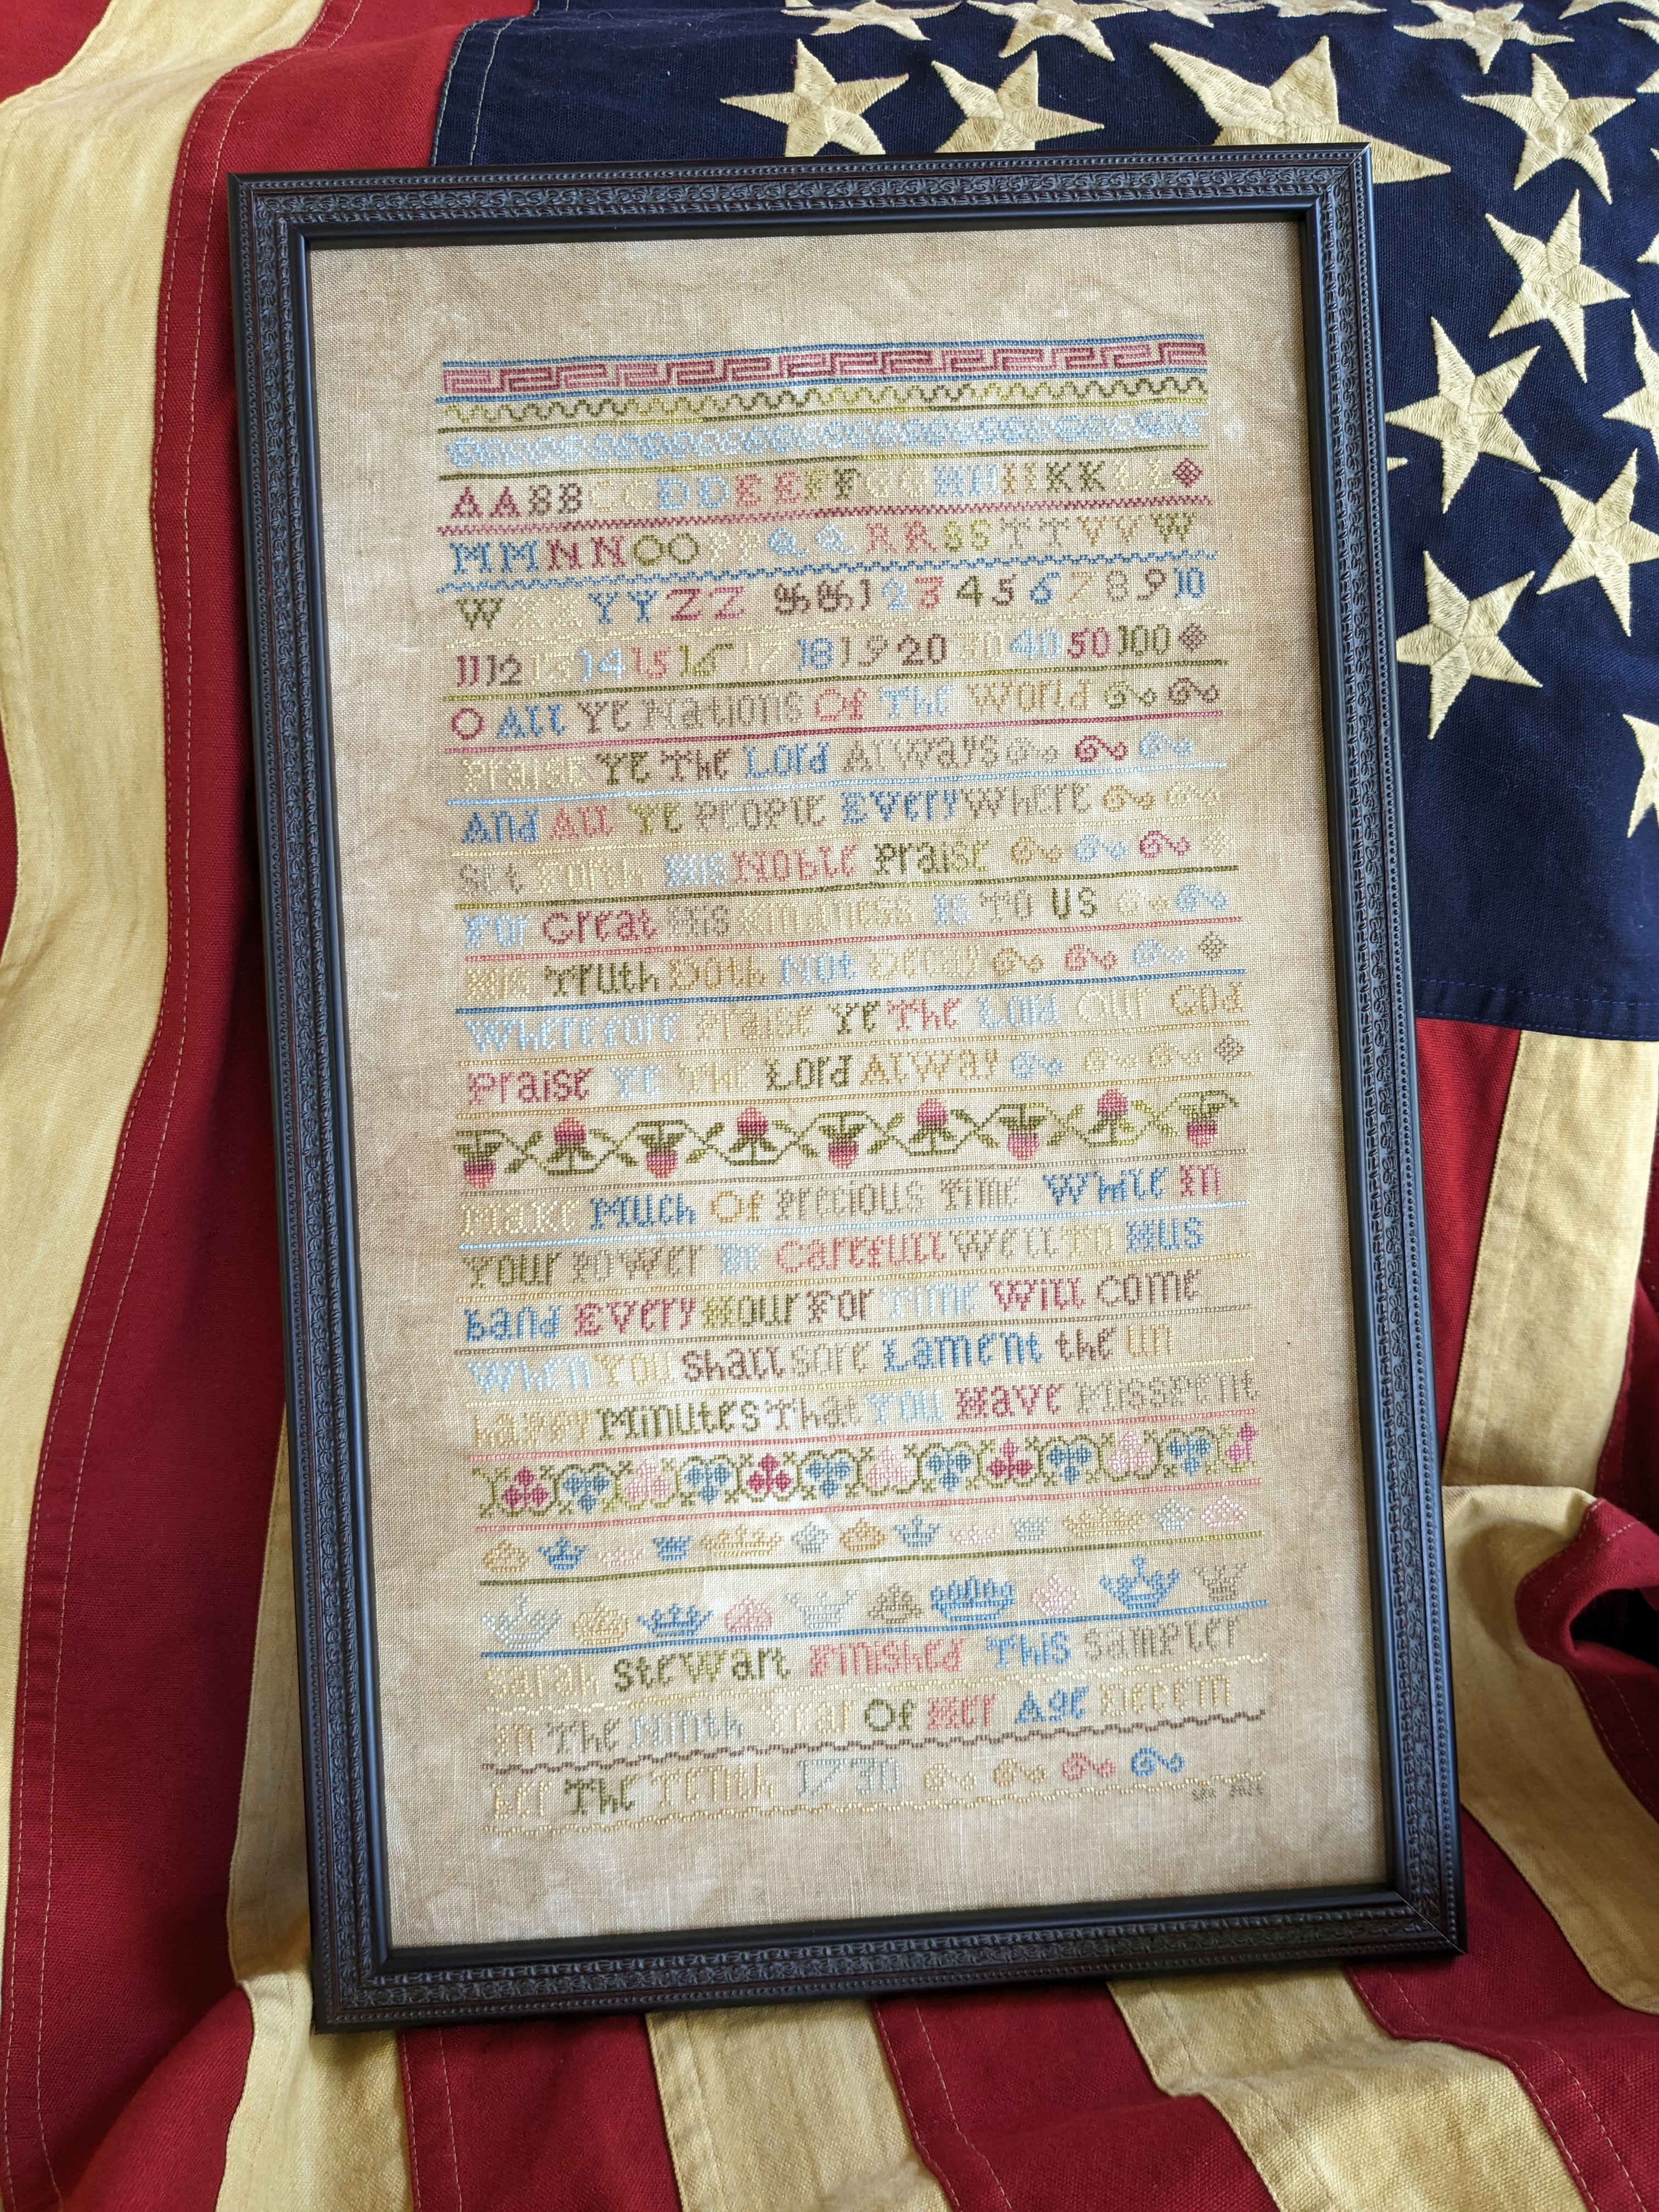 AABBCCDDEEFFGGHHIIKKLL
MMNNOOPPQQRRSSTTVVW
WXXYYZZ &&1 2 3 4 5 6 7 8 9 10
11 12 13 14 15 16 17 18 19 20 30 40 50 100
O All Ye Nations Of The World
Praise Ye The Lord Always
And All Ye People Every Where
Set Forth His Noble Praise
For Great His Kindness Is To Us
His Truth Doth Not Decay
Wherefore Praise Ye The Lord Our God
Praise Ye The Lord Alway
Make Much Of Precious Time While In
Your Power Be Carefull Well To Hus
band Every Hour For Time Will Come
When You Shall sore Lament the un
happy Minutes That You Have Misspent
Sarah Stewart Finished This Sampler
In The Ninth Year Of Her Age Decem
ber The Tenth 1730